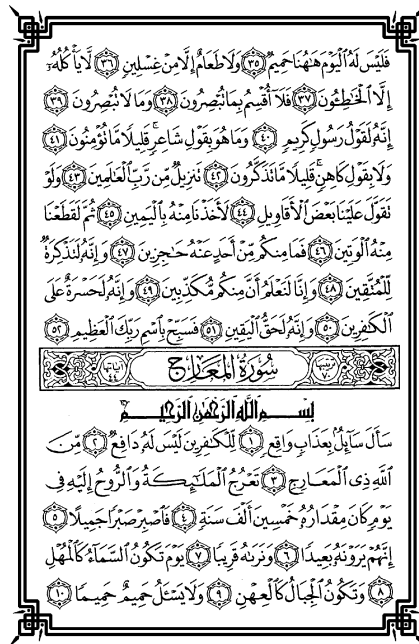 فَلَيْسَ لَهُ الْيَوْمَ هَٰهُنَا حَمِيمٌ ٣٥ وَلَا طَعَامٌ إِلَّا مِنْ غِسْلِينٍ ٣٦ لَّا يَأْكُلُهُۥٓ
إِلَّا الْخَٰطِـُٔونَ ٣٧ فَلَآ أُقْسِمُ بِمَا تُبْصِرُونَ ٣٨ وَمَا لَا تُبْصِرُونَ ٣٩
إِنَّهُۥ لَقَوْلُ رَسُولٍ كَرِيمٍ ٤٠ وَمَا هُوَ بِقَوْلِ شَاعِرٍ ۚ قَلِيلًا مَّا تُؤْمِنُونَ ٤١
وَلَا بِقَوْلِ كَاهِنٍ ۚ قَلِيلًا مَّا تَذَكَّرُونَ ٤٢ تَنزِيلٌ مِّن رَّبِّ الْعَٰلَمِينَ ٤٣ وَلَوْ
تَقَوَّلَ عَلَيْنَا بَعْضَ الْأَقَاوِيلِ ٤٤ لَأَخَذْنَا مِنْهُ بِالْيَمِينِ ٤٥ ثُمَّ لَقَطَعْنَا
مِنْهُ الْوَتِينَ ٤٦ فَمَا مِنكُم مِّنْ أَحَدٍ عَنْهُ حَٰجِزِينَ ٤٧ وَإِنَّهُۥ لَتَذْكِرَةٌ
لِّلْمُتَّقِينَ ٤٨ وَإِنَّا لَنَعْلَمُ أَنَّ مِنكُم مُّكَذِّبِينَ ٤٩ وَإِنَّهُۥ لَحَسْرَةٌ عَلَى
الْكَٰفِرِينَ ٥٠ وَإِنَّهُۥ لَحَقُّ الْيَقِينِ ٥١ فَسَبِّحْ بِاسْمِ رَبِّكَ الْعَظِيمِ ٥٢
ترتيبها ٧٠ سُورَةُ الْمَعَارِجِ آياتها ٤٤
بِسْمِ اللَّهِ الرَّحْمَٰنِ الرَّحِيمِ
سَأَلَ سَآئِلٌۢ بِعَذَابٍ وَاقِعٍ ١ لِّلْكَٰفِرِينَ لَيْسَ لَهُۥ دَافِعٌ ٢ مِّنَ
اللَّهِ ذِي الْمَعَارِجِ ٣ تَعْرُجُ الْمَلَٰٓئِكَةُ وَالرُّوحُ إِلَيْهِ فِي
يَوْمٍ كَانَ مِقْدَارُهُۥ خَمْسِينَ أَلْفَ سَنَةٍ ٤ فَاصْبِرْ صَبْرًا جَمِيلًا ٥
إِنَّهُمْ يَرَوْنَهُۥ بَعِيدًا ٦ وَنَرَىٰهُ قَرِيبًا ٧ يَوْمَ تَكُونُ السَّمَآءُ كَالْمُهْلِ
٨ وَتَكُونُ الْجِبَالُ كَالْعِهْنِ ٩ وَلَا يَسْـَٔلُ حَمِيمٌ حَمِيمًا ١٠